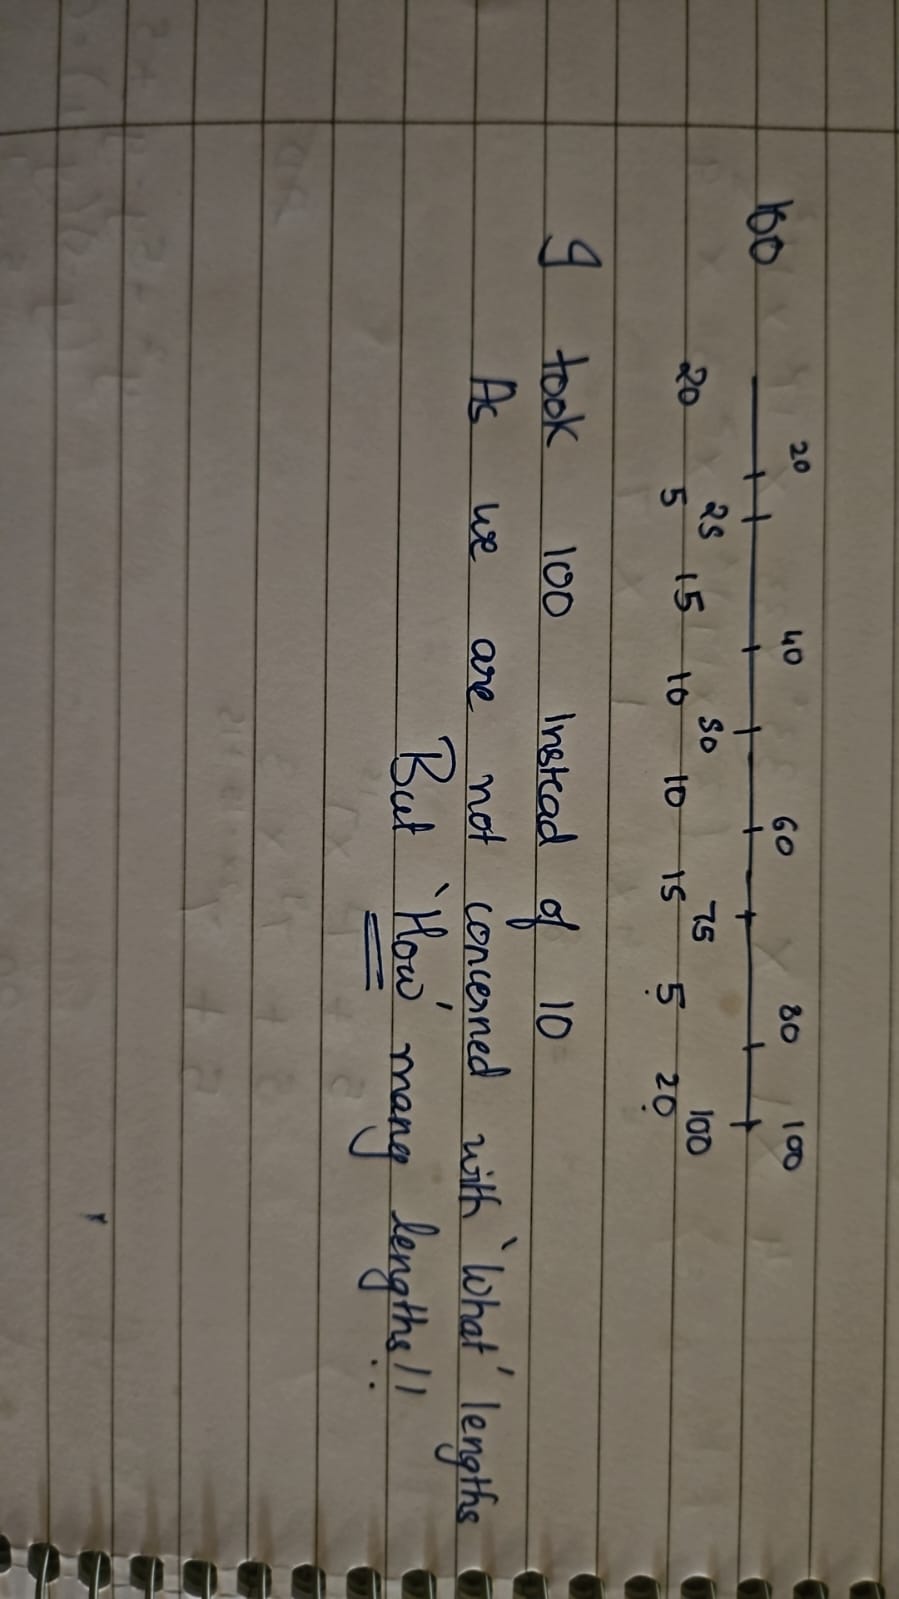 20 40 60 80 100
100
25 50 75 100
20 5 15 10 10 15 5 20
I took 100 instead of 10
As we are not concerned with 'what' lengths
But 'How' many lengths!!